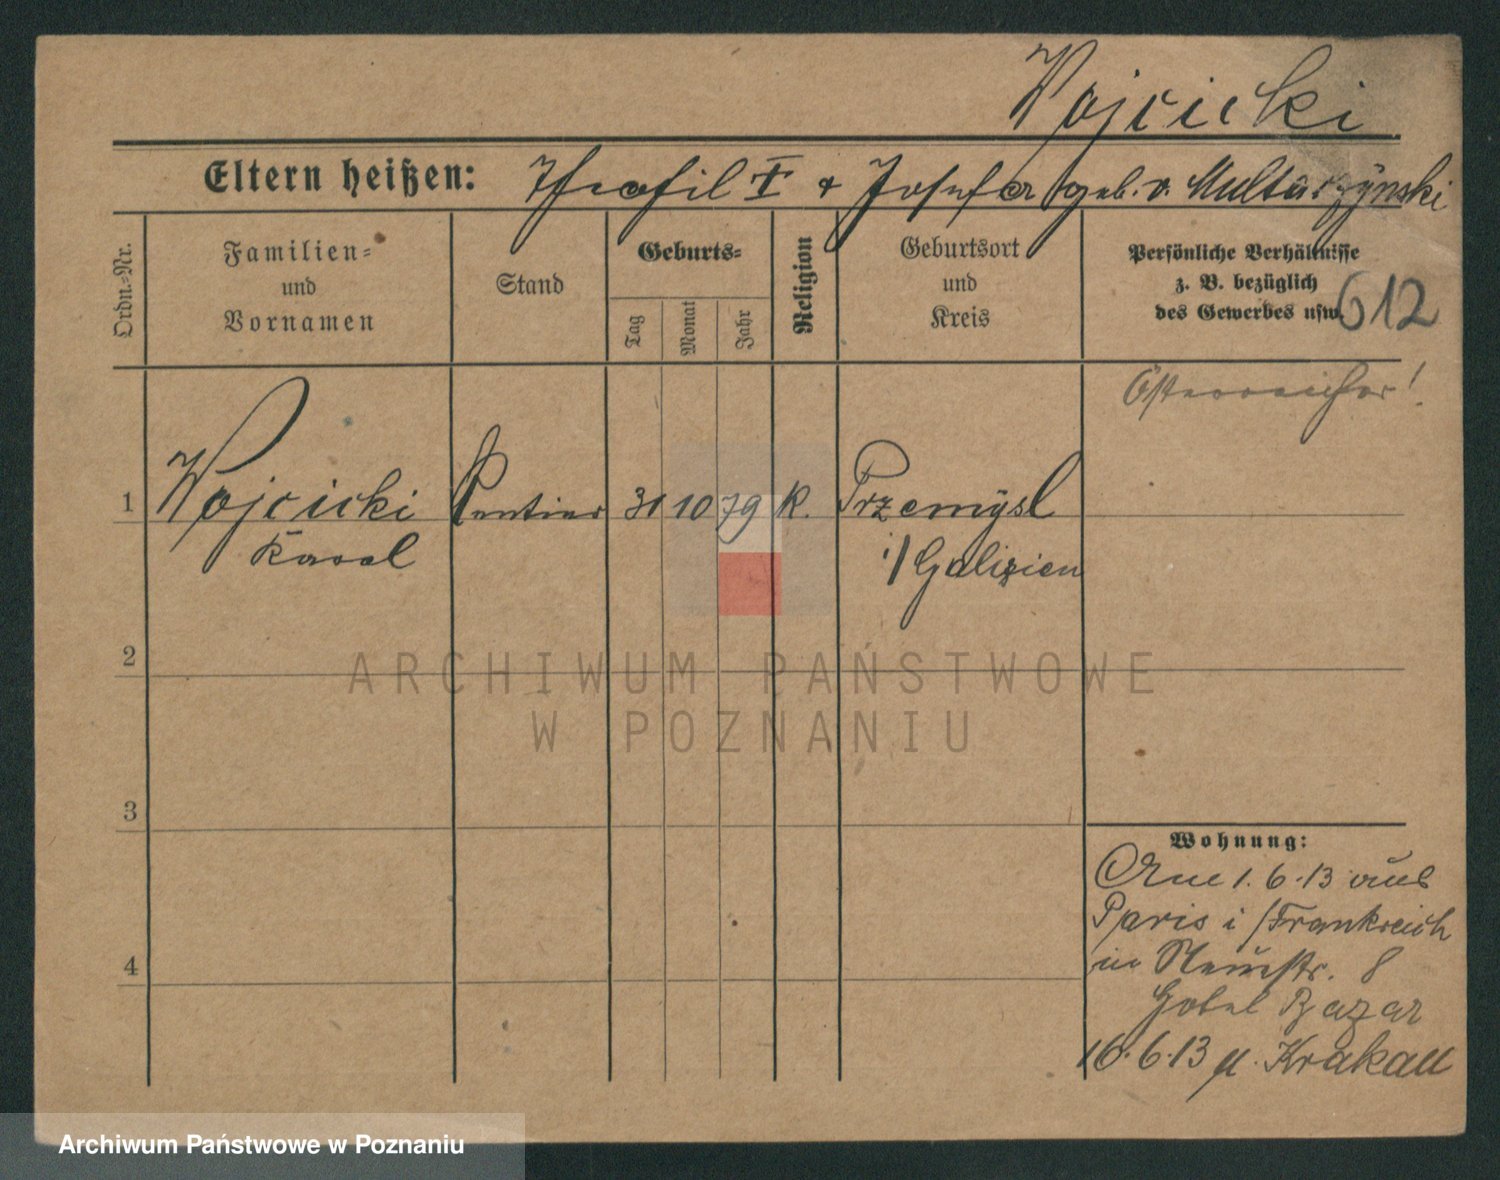 Wojcicki
Eltern heißen: Theofil † & Josefa geb. v. Multarzynski
Ordn.-Nr.
Familien- und Vornamen
Stand
Geburts-
Tag
Monat
Jahr
Religion
Geburtsort und Kreis
Persönliche Verhältnisse
z. B. bezüglich
des Gewerbes usw.
612
Österreicher!
1 Wojcicki Rentier 31 10 79 K. Przemÿsl
Karol i/Galizien
2
ARCHIWUM PAŃSTWOWE
W POZNANIU
3
Wohnung:
Am 1.6.13 aus
Paris i/Frankreich
in Neuestr. 8
Hotel Bazar
16.6.13 n. Krakau
4
Archiwum Państwowe w Poznaniu